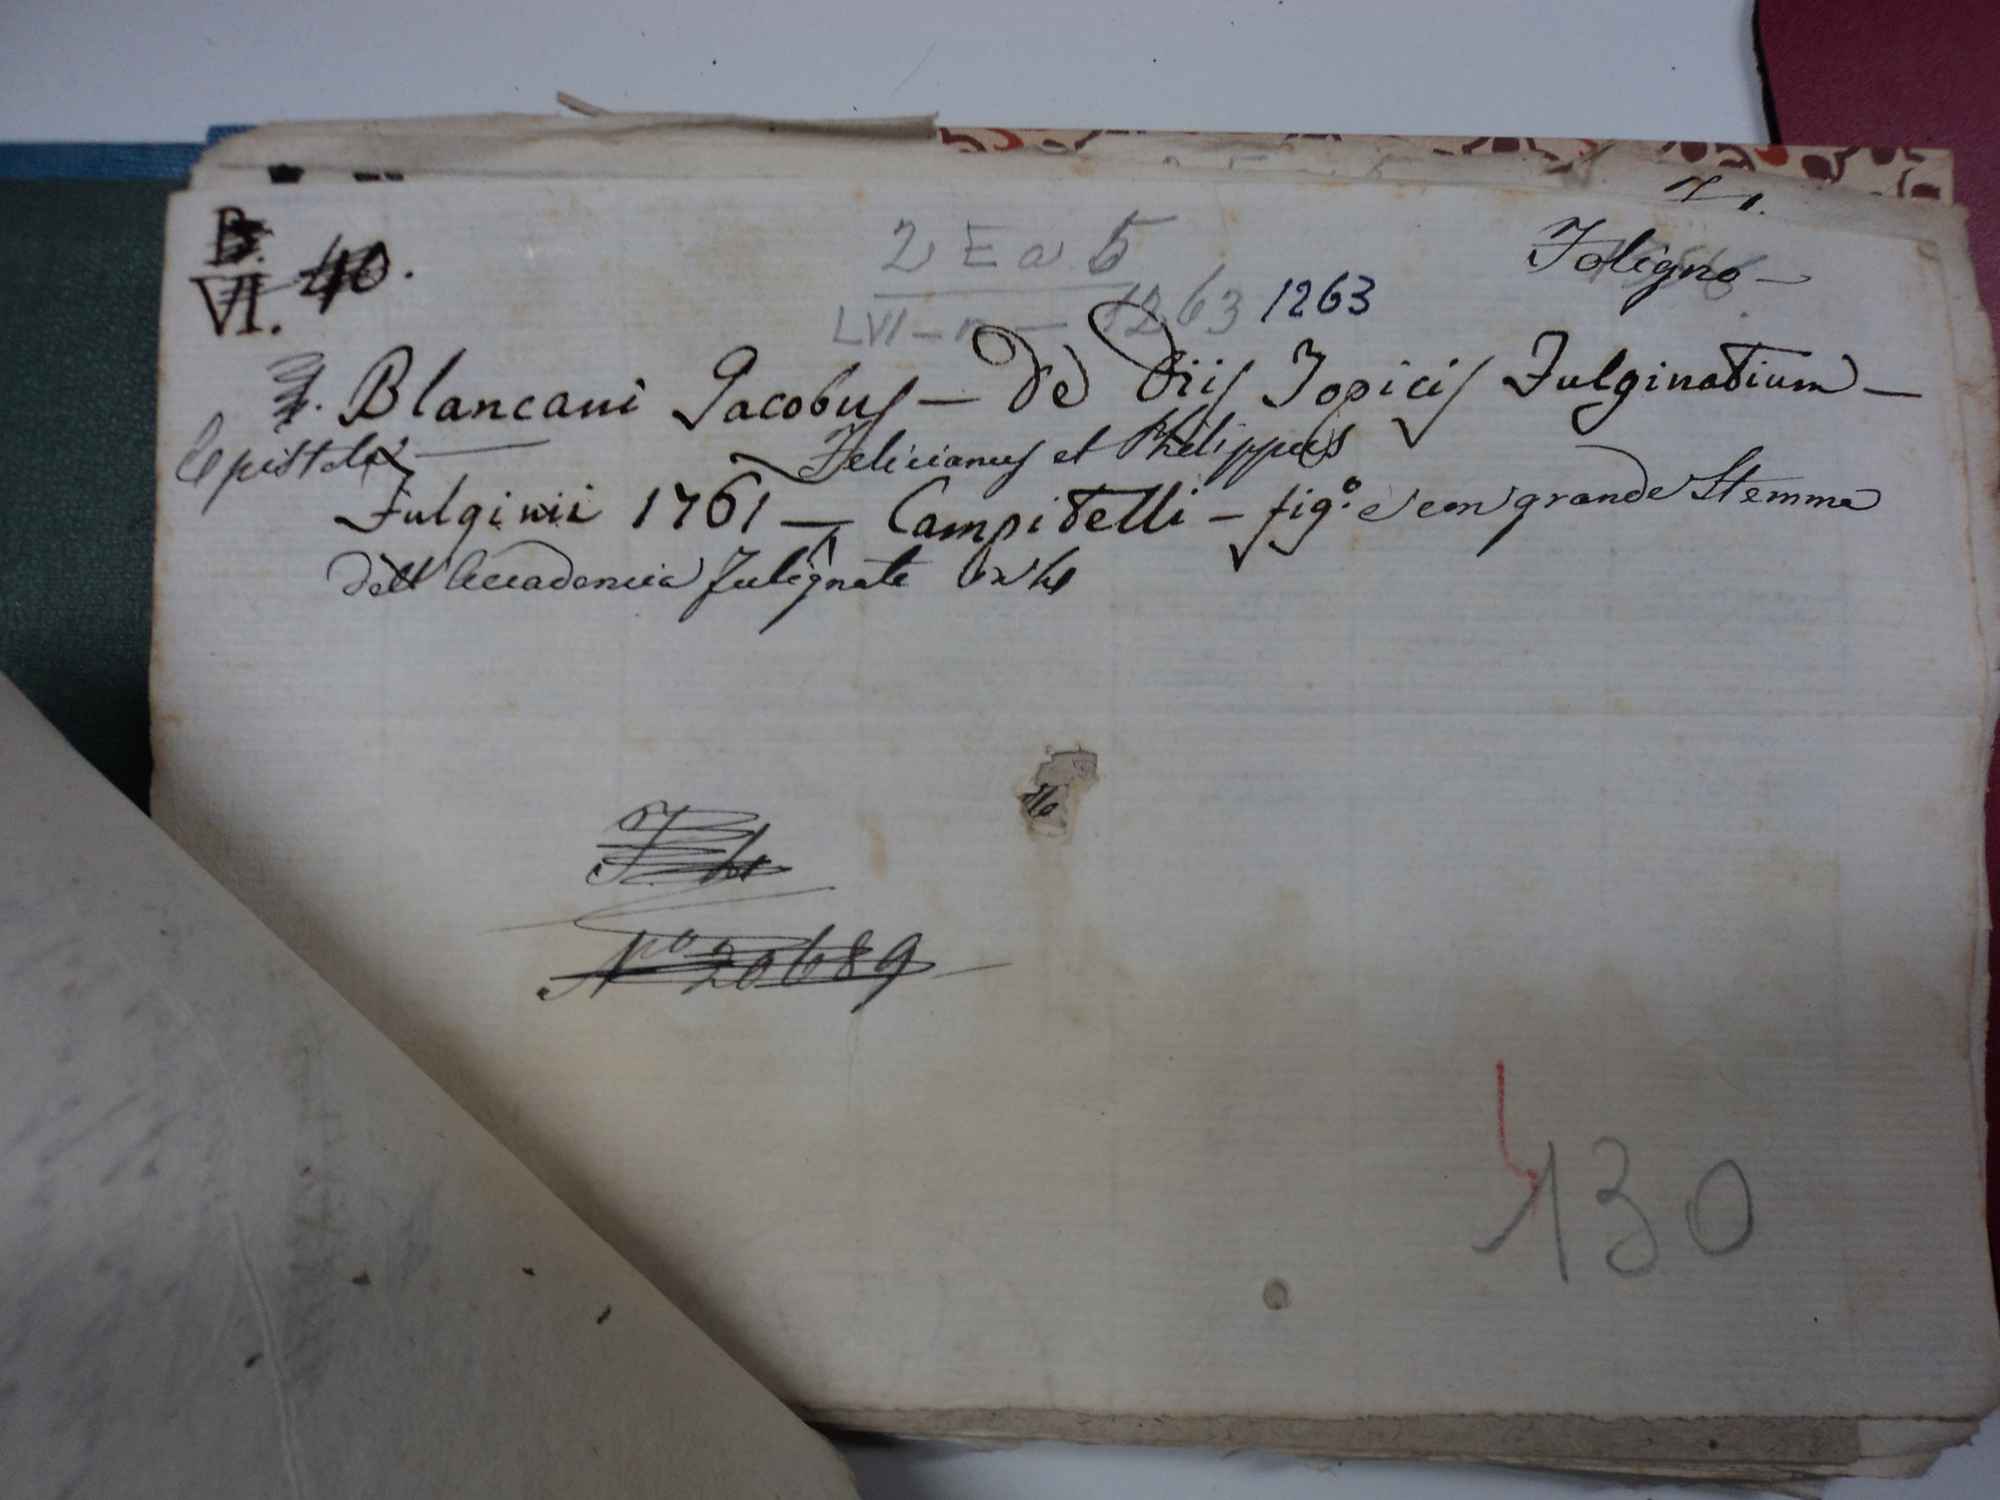 B.
VI. 40.
2 E a 5
LVI - n - 1263 1263
Foligno -
Blancani Jacobus - De Diis Topicis Fulginatium -
Epistola
Felicianus et Philippus
Fulginii 1761 - Campitelli - fig.º e con grande Stemma
dell'Accademia Fulignate
Nº 20689
130